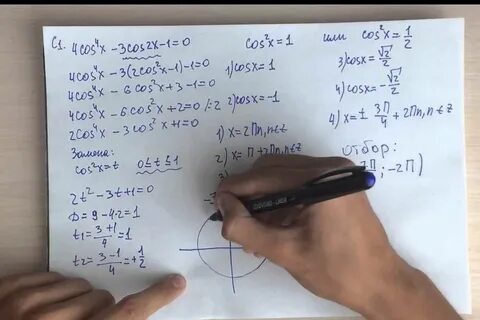 C1. 4cos⁴x - 3cos2x - 1 = 0
4cos⁴x - 3(2cos²x - 1) - 1 = 0
4cos⁴x - 6cos²x + 3 - 1 = 0
4cos⁴x - 6cos²x + 2 = 0 /:2
2cos⁴x - 3cos²x + 1 = 0
Замена:
cos²x = t 0 ≤ t ≤ 1
2t² - 3t + 1 = 0
D = 9 - 4·2 = 1
t₁ = (3+1)/4 = 1
t₂ = (3-1)/4 = + 1/2
cos²x = 1
1) cosx = 1
2) cosx = -1
1) x = 2Пn, n∈z
2) x = П + 2Пn, n∈z
3)
или cos²x = 1/2
3) cosx = √2/2
4) cosx = - √2/2
4) x = ± 3П/4 + 2Пn, n∈z
отбор:
; -2П)